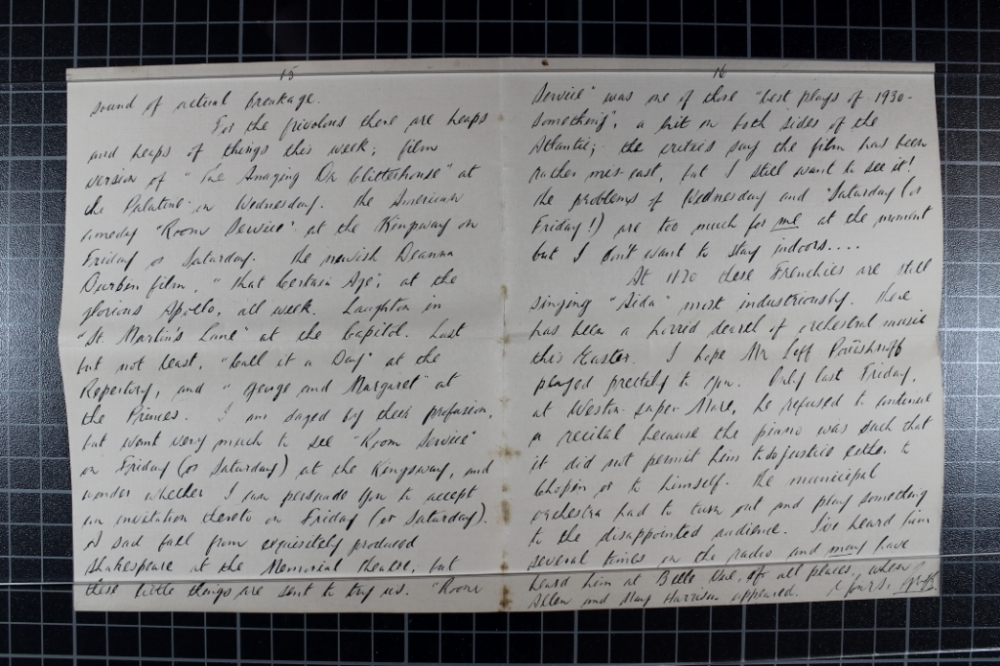 15
sound of actual breakage.
For the frivolous there are heaps
and heaps of things this week; film
version of "The Amazing Dr Clitterhouse" at
the Palatine on Wednesday. The American
comedy "Room Service" at the Kingsway on
Friday or Saturday. The newish Deanna
Durbin film, "That Certain Age", at the
glorious Apollo, all week. Laughton in
"St Martin's Lane" at the Capitol. Last
but not least, "Call it a Day" at the
Repertory, and "George and Margaret" at
the Princes. I am dazed by their profusion,
but want very much to see "Room Service"
on Friday (or Saturday) at the Kingsway, and
wonder whether I can persuade you to accept
an invitation thereto on Friday (or Saturday).
A sad fall from exquisitely produced
Shakespeare at the Memorial Theatre, but
these little things are sent to try us. "Room
16
Service" was one of those "best plays of 1930-
something", a hit on both sides of the
Atlantic; the critics say the film has been
rather mis-cast, but I still want to see it!
The problems of Wednesday and Saturday (or
Friday!) are too much for me at the moment
but I don't want to stay indoors....
At 11.30 these Frenchies are still
singing "Aida" most industriously. There
has been a horrid dearth of orchestral music
this Easter. I hope Mr Leff Pouishnoff
played prettily to you. Only last Friday,
at Weston-super-Mare, he refused to continue
a recital because the piano was such that
it did not permit him to do justice either to
Chopin or to himself. The municipal
orchestra had to turn out and play something
to the disappointed audience. I've heard him
several times on the radio and may have
heard him at Belle Vue, of all places, when
Allen and Mary Harrison appeared. Yours,